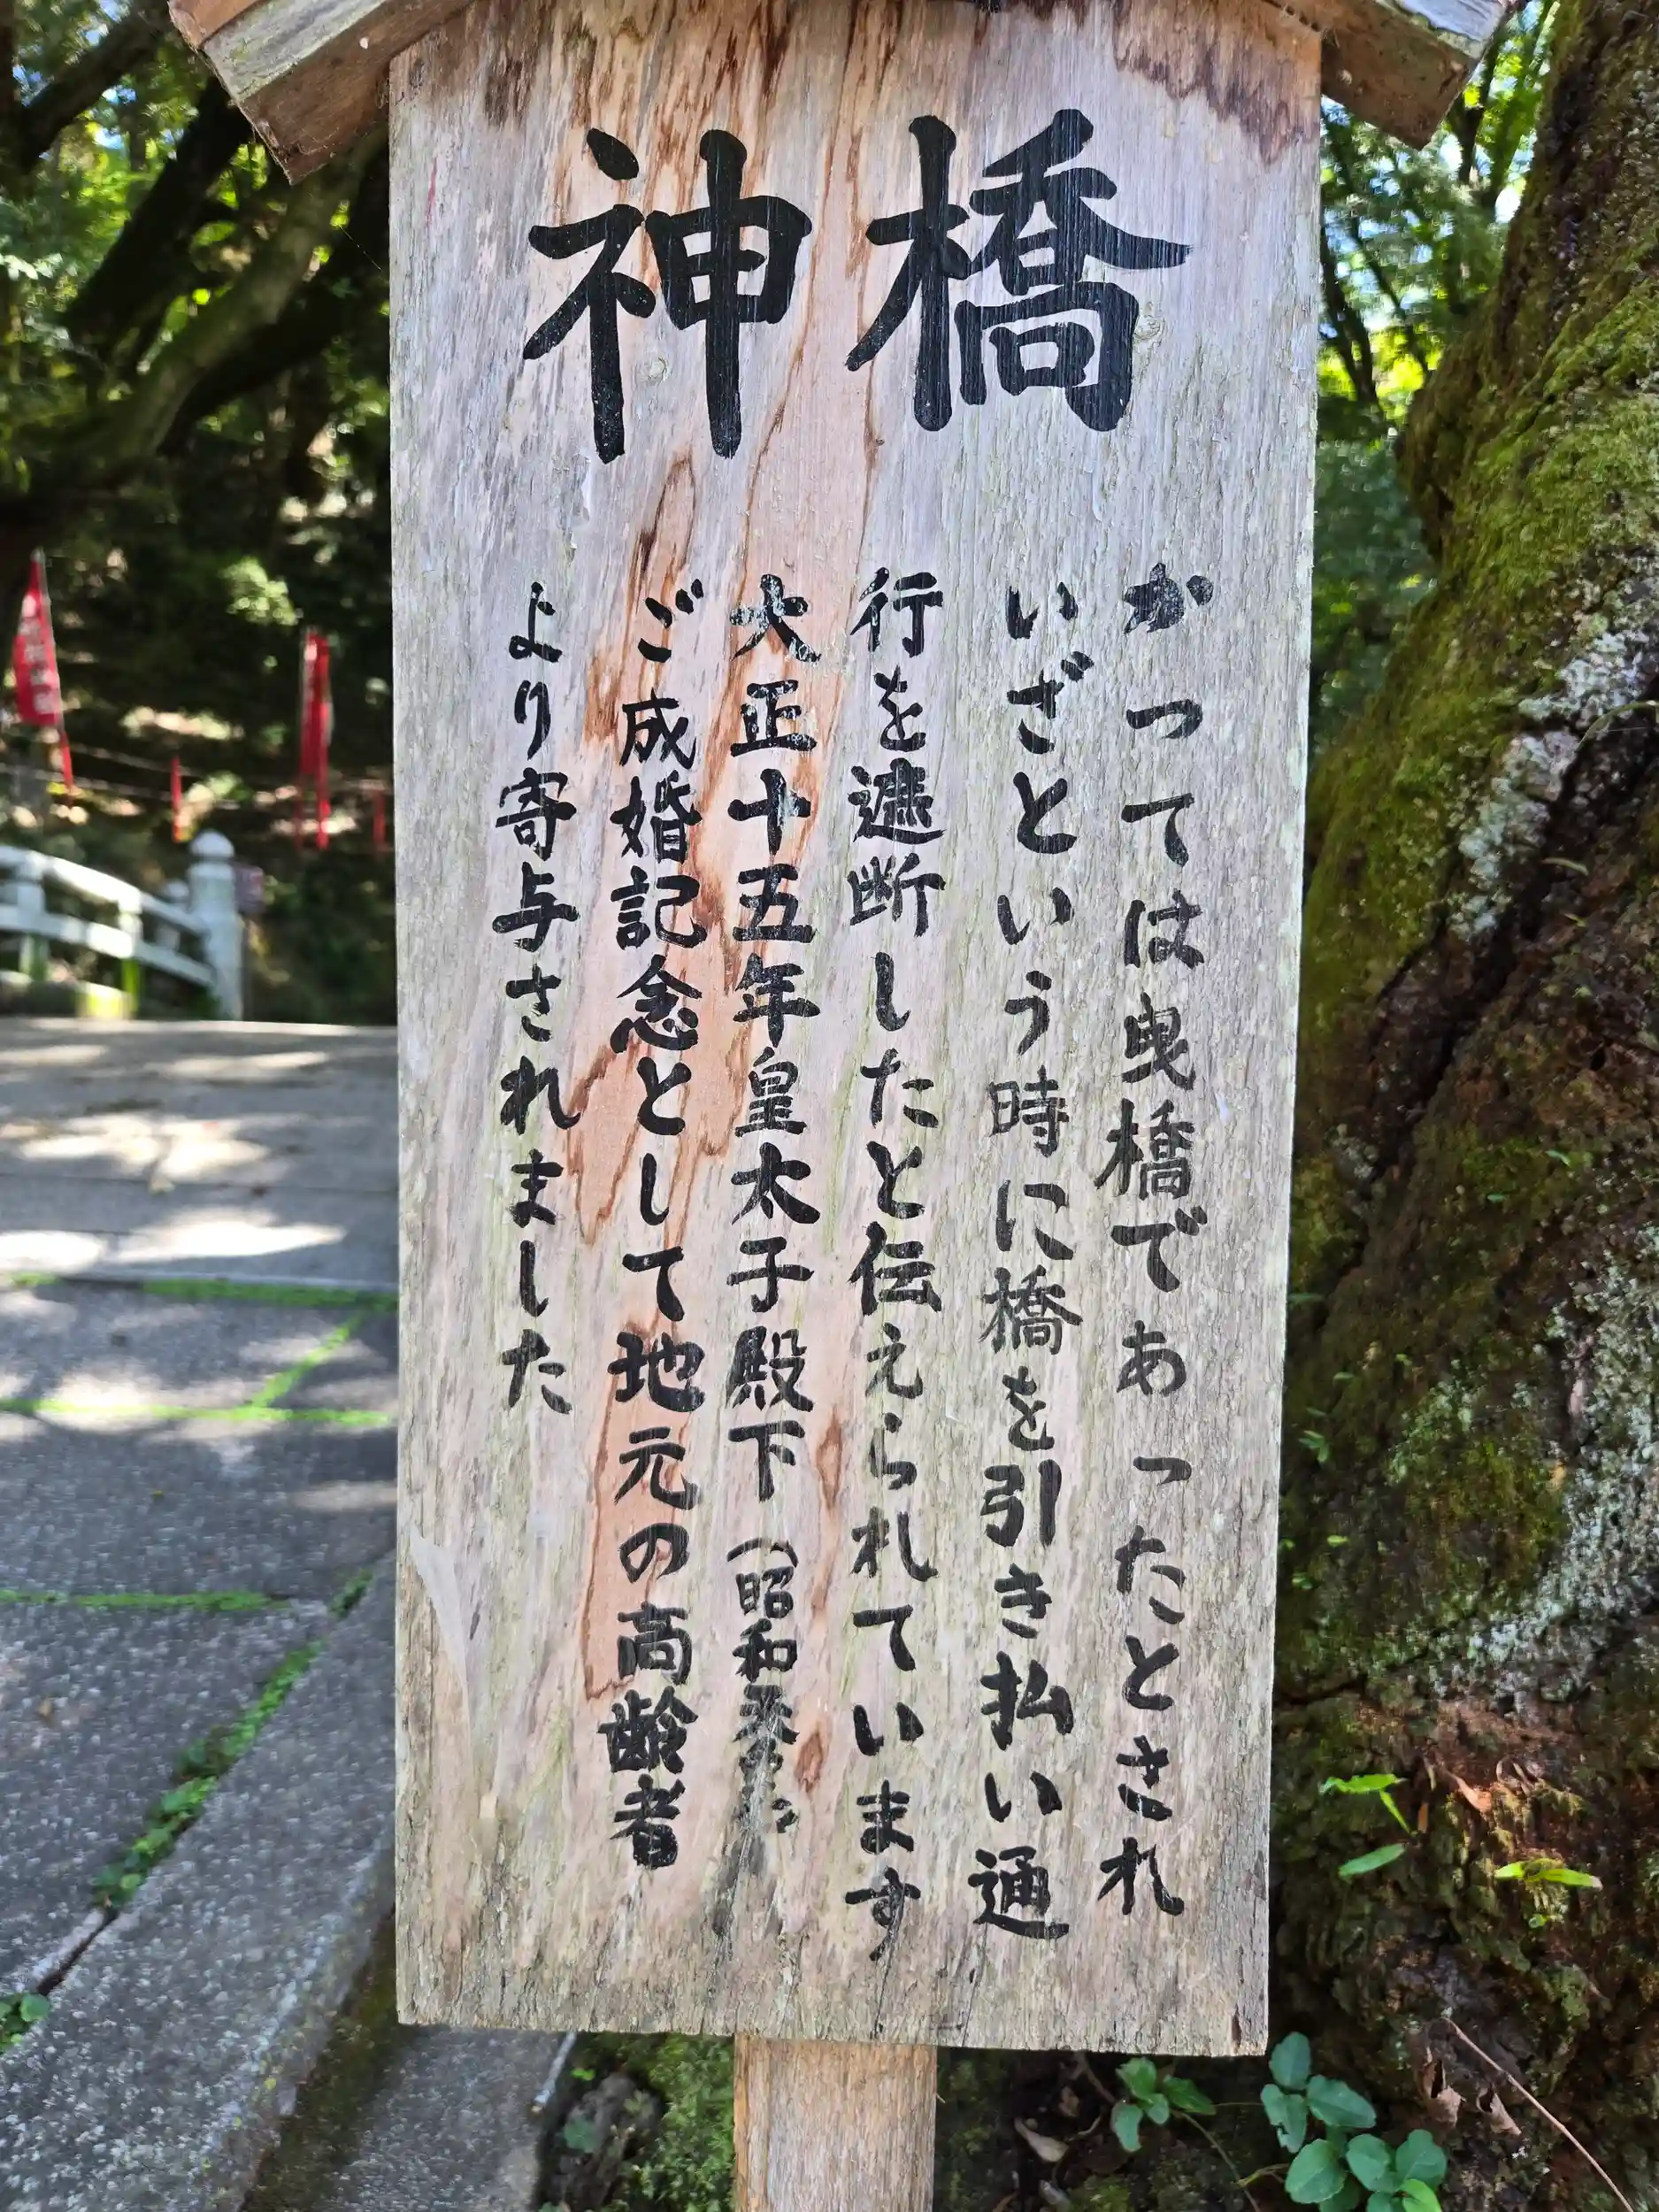 神橋
かつては曳橋であったとされ
いざという時に橋を引き払い通
行を遮断したと伝えられています
大正十五年皇太子殿下(昭和天皇)
ご成婚記念として地元の高齢者
より寄与されました